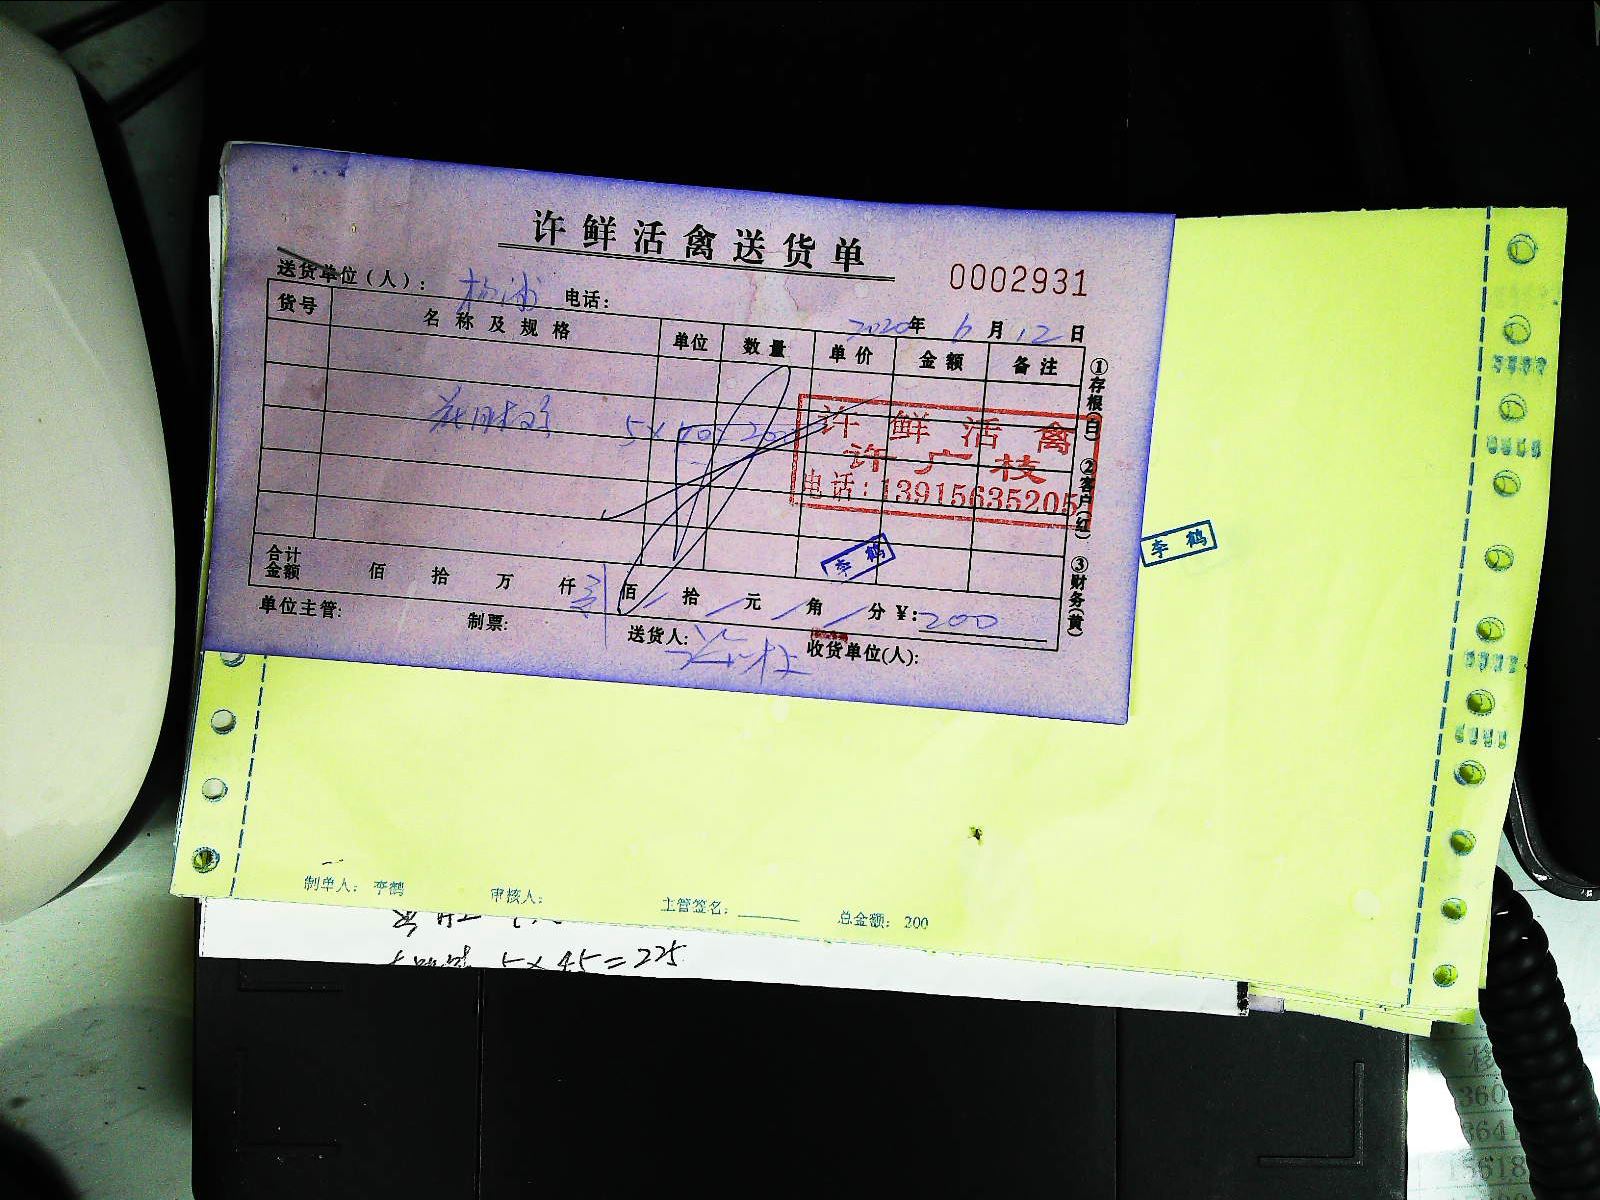 许鲜活禽送货单
0002931
送货单位(人): 电话:
2020年 6月 12日
货号 名称及规格 单位 数量 单价 金额 备注
5×40 200
许鲜活禽
许广枝
电话:13915635205
李鹤
李鹤
合计金额 佰 拾 万 仟 佰 拾 元 角 分 ¥:200
单位主管: 制票: 送货人: 收货单位(人):
①存根(白) ②客户(红) ③财务(黄)
制单人: 李鹤 审核人: 主管签名: 总金额: 200
5×45=225
移
360
3641
15618